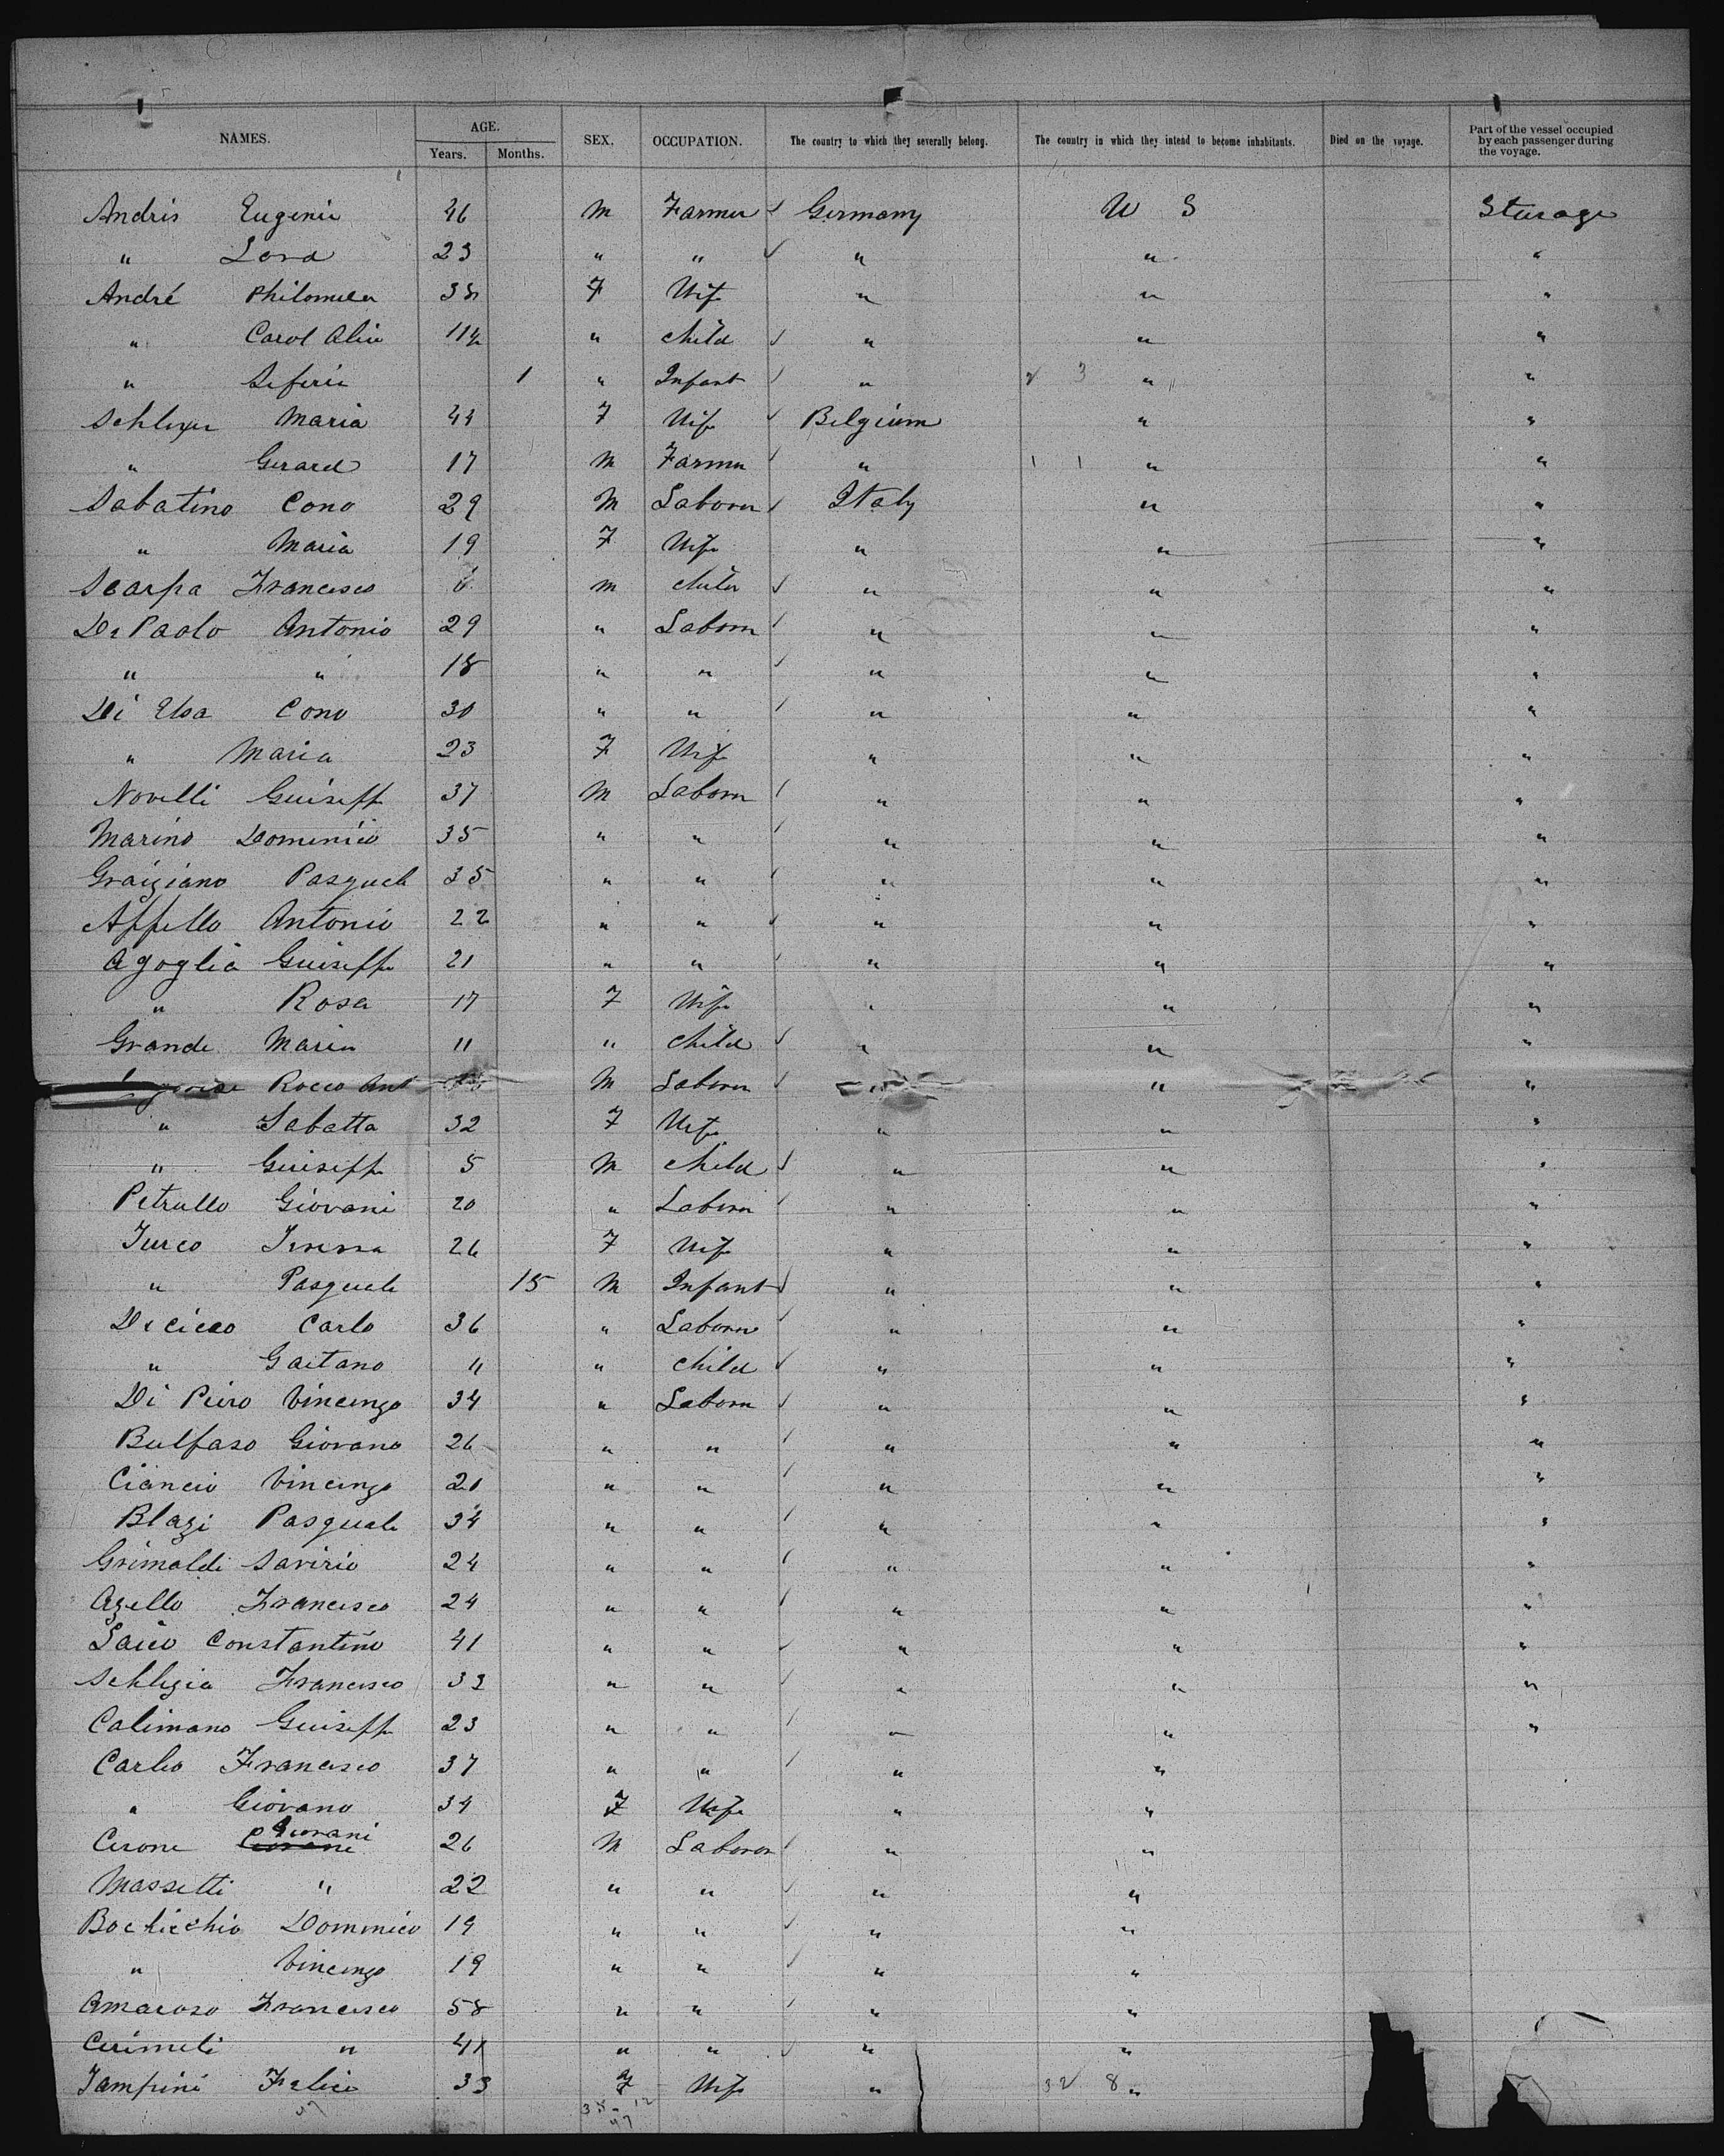 NAMES. AGE. SEX. OCCUPATION. The country to which they severally belong. The country in which they intend to become inhabitants. Died on the voyage. Part of the vessel occupied by each passenger during the voyage.
Years. Months.
Andris Eugenie 46 M Farmer Germany U S Sturage
" Lena 23 " " " " "
André Philomela 38 F Wife " " "
" Carol Alin 11½ " child " " "
" Seferie 1 " Infant " 2 3 " "
Schleyer Maria 44 F Wife Belgium " "
" Gerard 17 M Farmer " 1 1 " "
Sabatino Cono 29 M Laborer Italy " "
" Maria 19 F Wife " " "
Scarpa Francesco 6 m child " " "
De Paolo Antonio 29 " Laborer " " "
" " 18 " " " " "
Di Elsa Cono 30 " " " " "
" Maria 23 F Wife " " "
Novelli Guiseppe 37 M Laborer " " "
Marino Dominico 35 " " " " "
Graiziano Pasquale 35 " " " " "
Appello Antonio 22 " " " " "
Agoglia Guiseppe 21 " " " " "
" Rosa 17 F Wife " " "
Grande Maria 11 " child " " "
Rocco Ant M Laborer " " "
" Sabatta 32 F Wife " " "
" Guiseppe 5 M child " " "
Petrullo Giovani 20 " Laborer " " "
Turco Teressa 26 F Wife " " "
" Pasquale 15 M Infant " " "
De cicco Carlo 36 " Laborer " " "
" Gaetano 11 " child " " "
Di Piero Vincenzo 34 " Laborer " " "
Bulfaso Giovano 26 " " " " "
Ciancio Vincenzo 20 " " " " "
Blazi Pasquale 34 " " " " "
Grimaldi Savirio 24 " " " " "
Azello Francisco 24 " " " " "
Saiio Constantino 41 " " " " "
Schlegia Francisco 33 " " " " "
Calimano Guiseppe 23 " " " " "
Carleo Francisco 37 " " " "
" Giovano 34 F Wife " "
Cerone Giovani 26 M Laborer " "
Massetti " 22 " " " "
Bochicchio Dominico 19 " " " "
" Vincenzo 19 " " " "
Amaroso Francisco 58 " " " "
Cirimeli " 41 " " " "
Tampini Felice 33 F Wife " 32 8 "
47 35 - 12
47